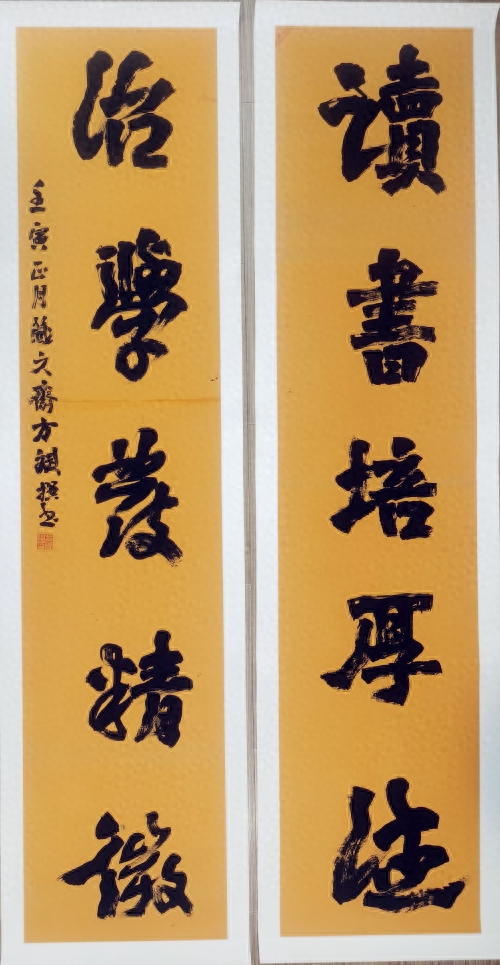 讀書培厚
治學發精微
壬寅正月文齋方撰書